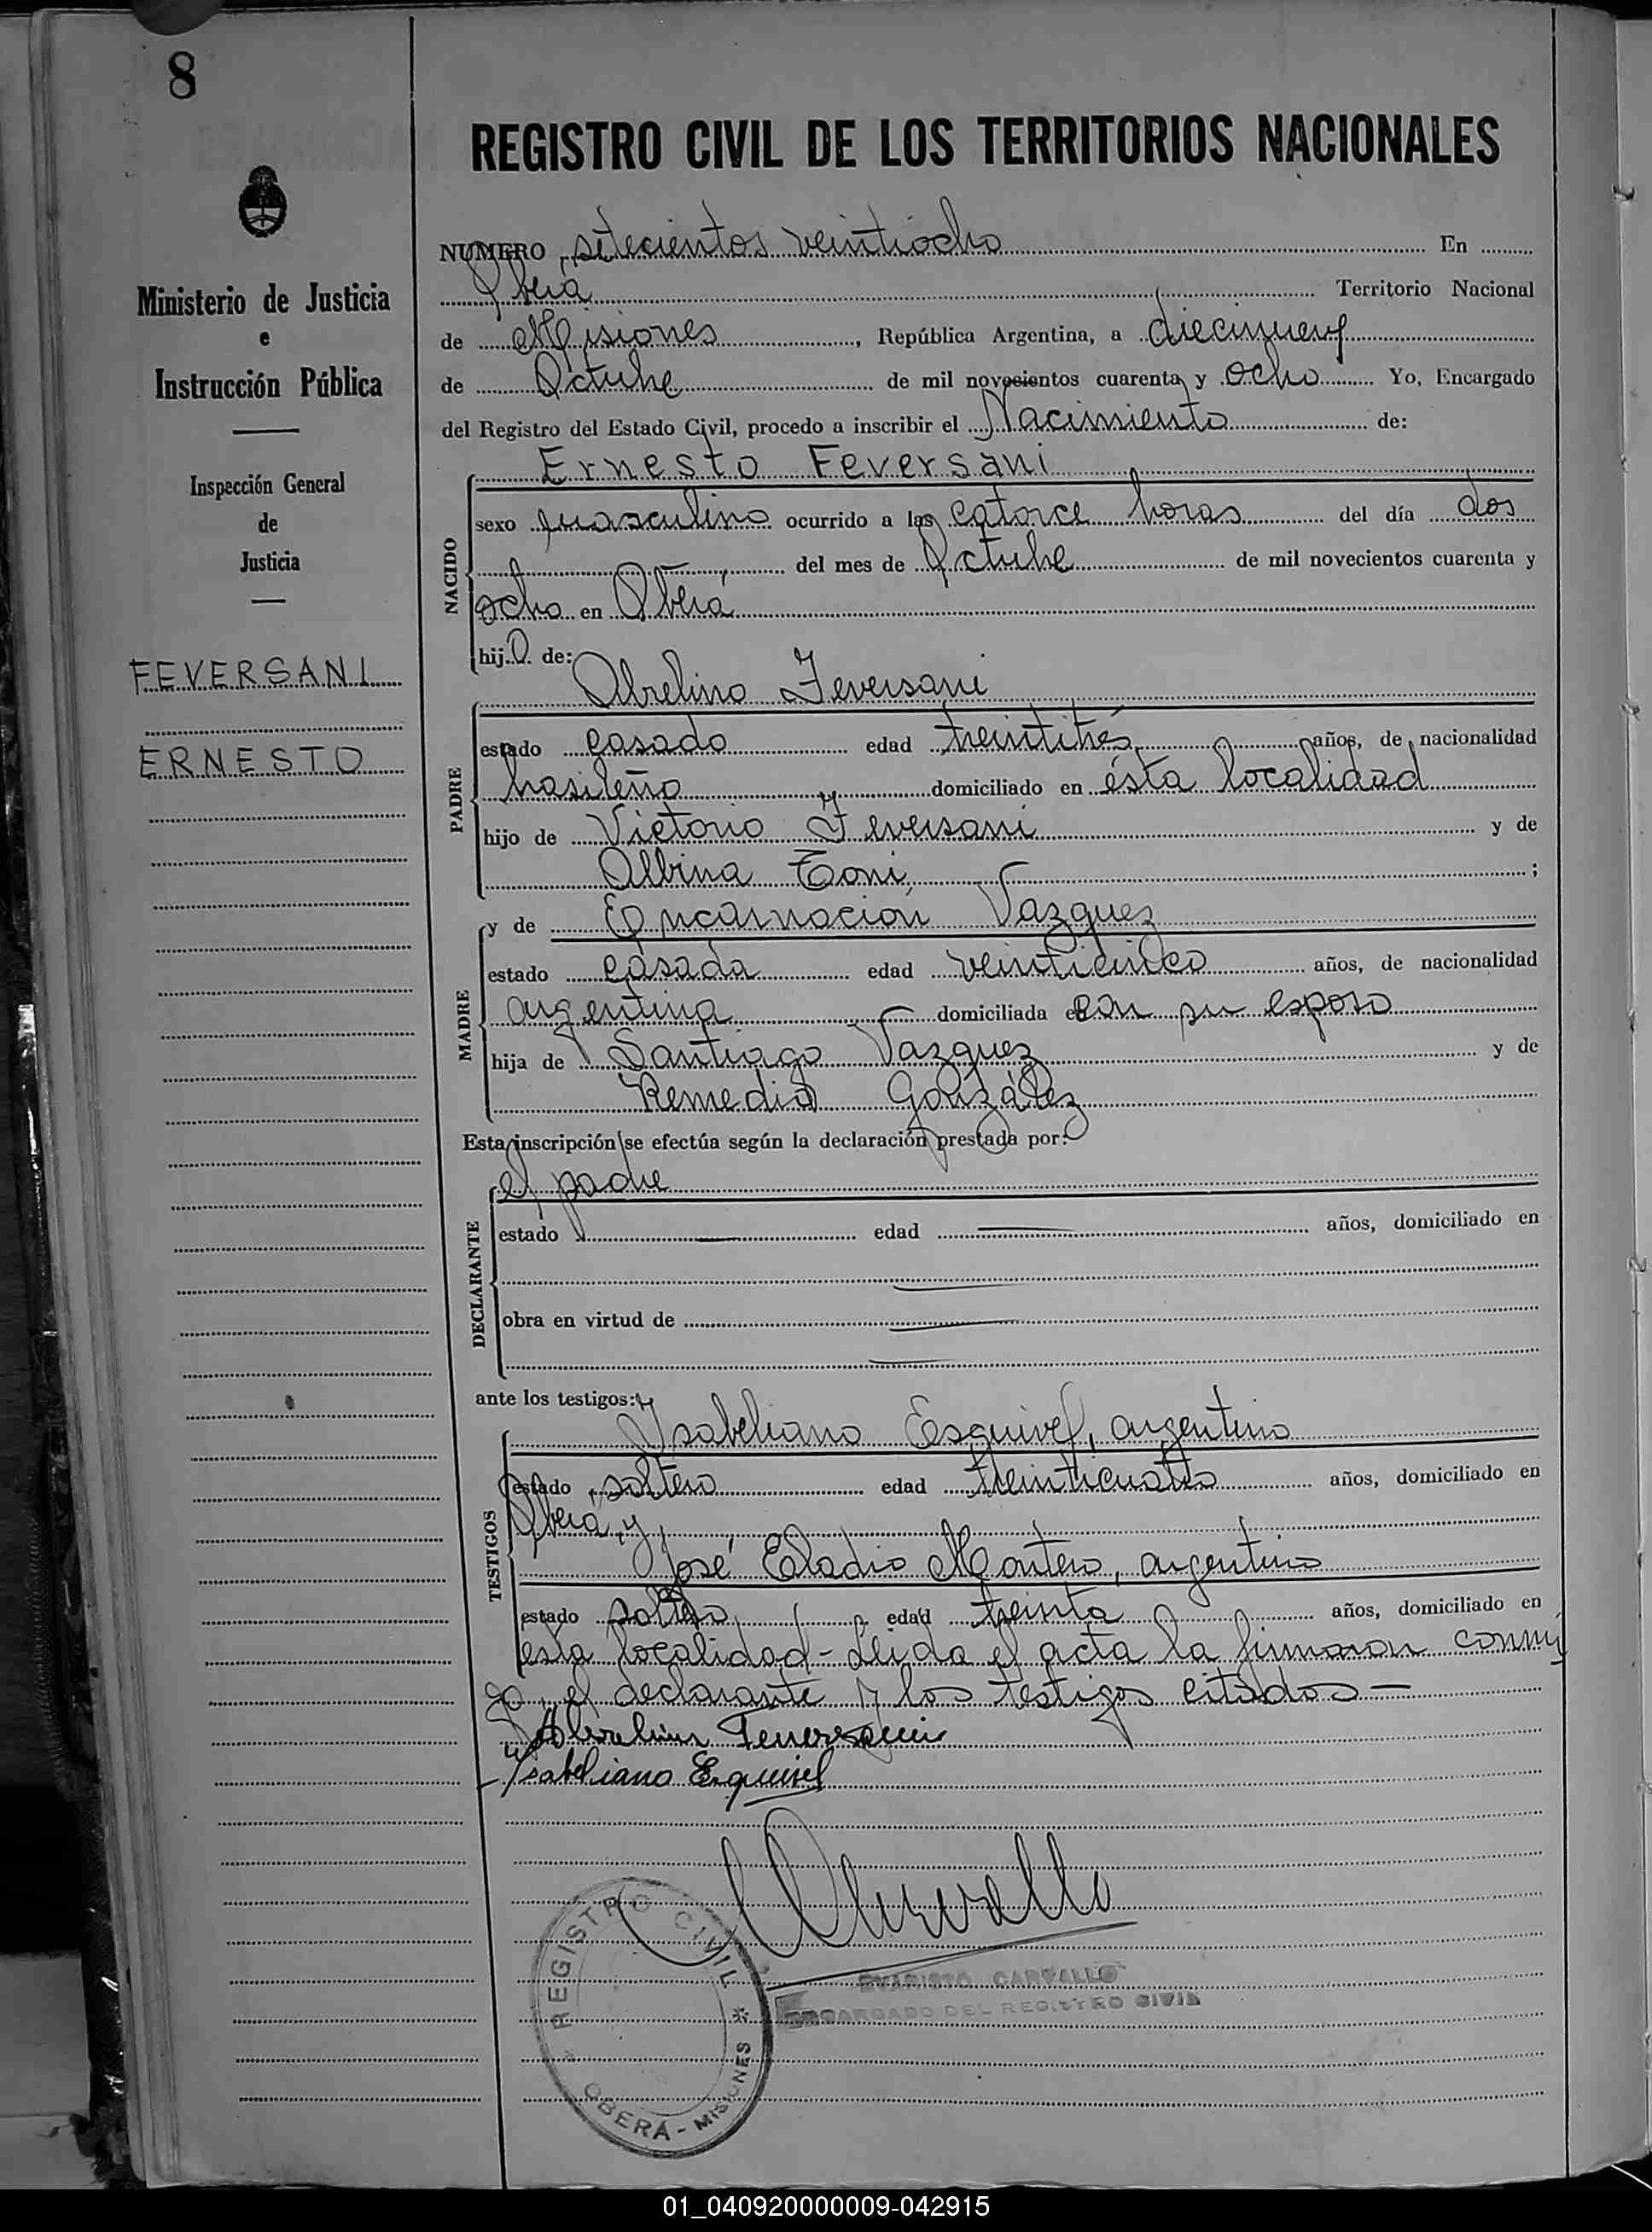 8
REGISTRO CIVIL DE LOS TERRITORIOS NACIONALES
Ministerio de Justicia
e
Instrucción Pública
Inspección General
de
Justicia
FEVERSANI
ERNESTO
NUMERO setecientos veintiocho En
Oberá Territorio Nacional
de Misiones, República Argentina, a diecinueve
de Octubre de mil novecientos cuarenta y ocho Yo, Encargado
del Registro del Estado Civil, procedo a inscribir el Nacimiento de:
Ernesto Feversani
NACIDO
sexo masculino ocurrido a las catorce horas del día dos
del mes de Octubre de mil novecientos cuarenta y
ocho en Oberá
hijo de:
Abrelino Feversani
PADRE
estado casado edad treintitrés años, de nacionalidad
brasileño domiciliado en ésta localidad
hijo de Victorio Feversani y de
Albina Toni ;
y de Encarnación Vazquez
MADRE
estado casada edad veinticinco años, de nacionalidad
argentina domiciliada con su esposo
hija de Santiago Vazquez y de
Remedio González
Esta inscripción se efectúa según la declaración prestada por:
el padre
DECLARANTE
estado edad años, domiciliado en
obra en virtud de
ante los testigos:
Ysabeliano Esquivel, argentino
TESTIGOS
estado soltero edad treinticuatro años, domiciliado en
Oberá, y
José Eladio Montero, argentino
estado soltero, edad treinta años, domiciliado en
esta localidad - Leida el acta la firmaron conmi
go, el declarante y los testigos citados -
Abrelino Feversani
Ysabeliano Esquivel
REGISTRO CIVIL
OBERÁ - MISIONES
EVARISTO CARVALLO
ENCARGADO DEL REGISTRO CIVIL
01_040920000009-042915